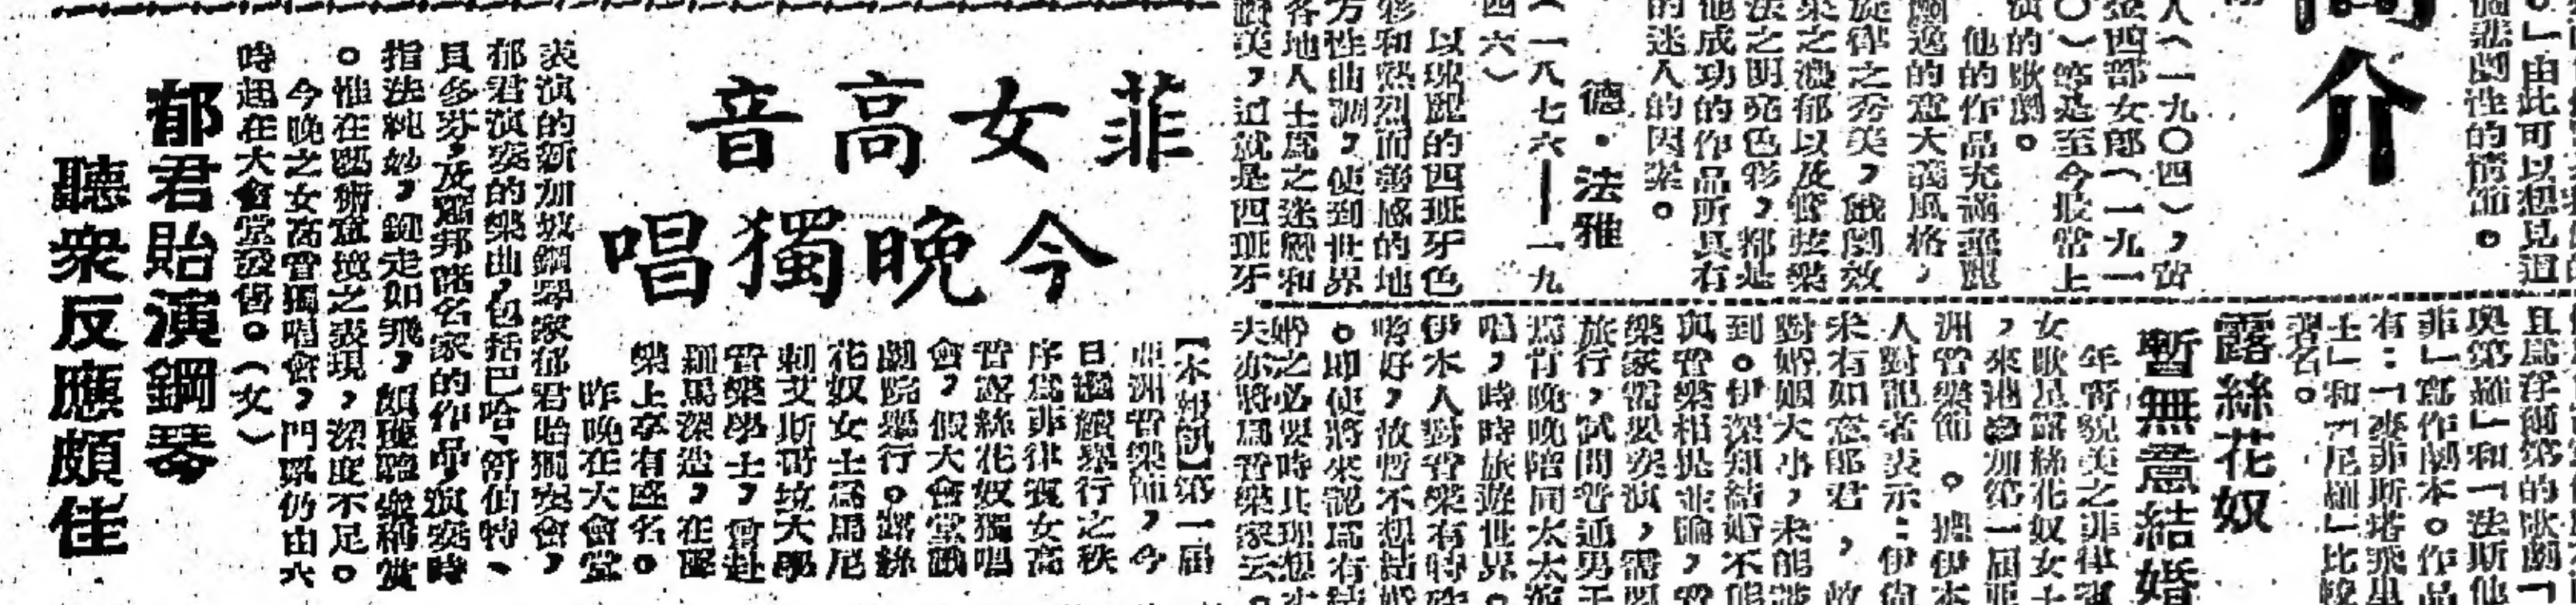 。」由此可以想見這
個悲劇性的情節。
介
人(一九〇四)，蕾
金西部女郎(一九一
〇)等是至今最常上
演的歌劇。
他的作品充滿華麗
飄逸的意大利風格，
旋律之秀美，戲劇效
果之濃郁以及管弦樂
法之明亮色彩，都是
他成功的作品所具有
的迷人的因素。
德・法雅
(一八七六——一九
四六)
以瑰麗的西班牙色
彩和熱烈而善感的地
方性曲調，使到世界
各地人士爲之迷戀和
讚美，這就是西班牙
菲女高音
今晚獨唱
【本報訊】第一屆
亞洲音樂節，今
日繼續舉行之秩
序爲菲律賓女高
音露絲花奴獨唱
會，假大會堂戲
劇院舉行。露絲
花奴女士爲馬尼
剌艾斯哥坡大學
音樂學士，曾赴
羅馬深造，在聲
樂上享有盛名。
昨晚在大會堂
表演的新加坡鋼琴家郁君貽獨奏會，
郁君演奏的樂曲，包括巴哈、舒伯特、
貝多芬，及蕭邦諸名家的作品，演奏時
指法純妙，鍵走如飛，頗獲聽衆稱賞
。惟在藝術意境之表現，深度不足。
今晚之女高音獨唱會，門票仍由六
時起在大會堂發售。(女)
郁君貽演鋼琴
聽衆反應頗佳
且爲浮爾第的歌劇「
奧第羅」和「法斯他
菲」寫作劇本。作品
有：「麥菲斯塔飛里
王」和「尼羅」比較
著名。
露絲花奴
暫無意結婚
年青貌美之菲律賓
女歌星露絲花奴女士
，來港參加第一屆亞
洲音樂節。據伊本
人對記者表示：伊尚
未有如意郎君，故
對婚姻大事，未能談
到。伊深知結婚不能
與音樂相提並論，音
樂家需要演奏，需要
旅行，試問普通男子
焉肯晚晚陪同太太演
唱，時時旅遊世界。
伊本人對音樂有特殊
嗜好，故暫不想結婚
。即使將來認爲有結
婚之必要時其理想丈
夫亦將爲音樂家云。